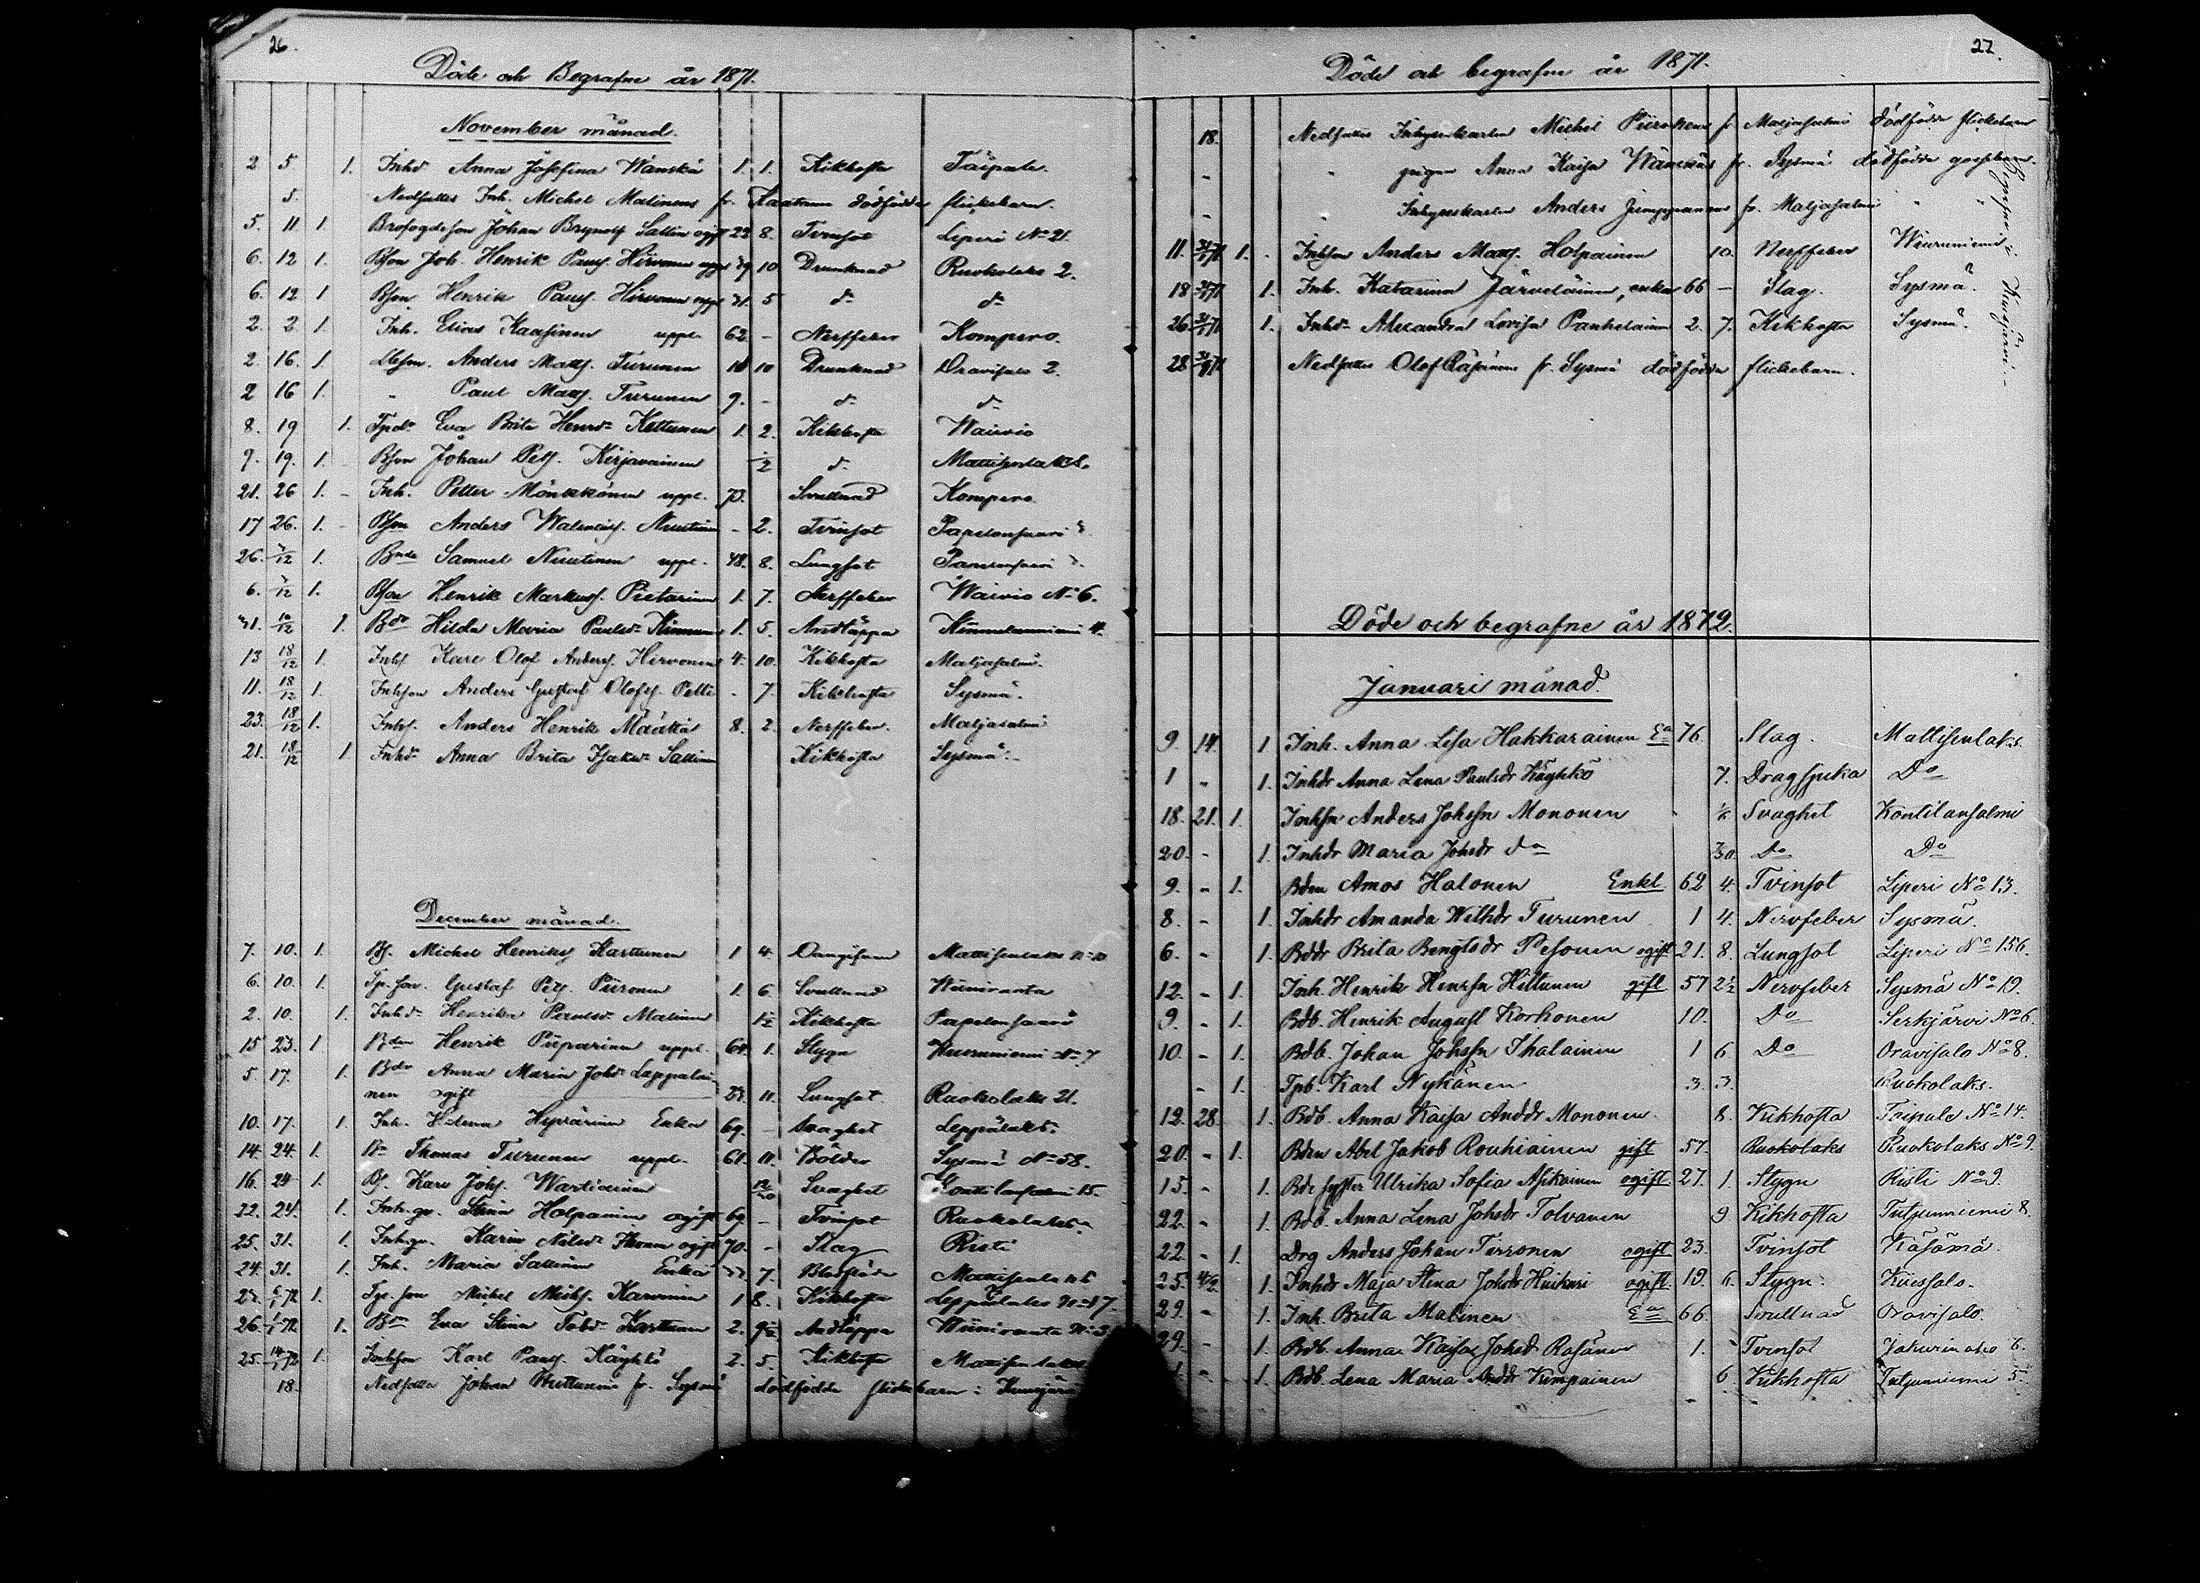 26.
Döde och Begrafne år 1871.
November månad.
2 5 1. Inhd Anna Josefina Wänskä 1. 1. Kikhosta Taipale.
5. Nedsattes Inh. Michel Malinens fr. dödfödda flickebarn.
5. 11 1 Johan Brynolf Sallin ogift 22 8. Tvinsot Liperi No 21.
6. 12 1 Bson Joh. Henrik Paulss. Hirvonen 10 Drunknad Ruokolaks 2.
6. 12 1 Bson Henrik Paulss. Hirvonen 5 do do
2. 2 1. Inh. Elias Kaasinen uppl. 62 - Nerffeber Kompero.
2. 16. 1. Anders Matts. Turunen 10 10 Drunknad Oravisalo 2.
2 16 1. " Paul Matts. Turunen 9. - do do
8. 19 1. Eva Brita Henrsdr Kettunen 1. 2. Kikhosta Waivio
9. 19. 1. Bson Johan Pets. Kirjavainen 1/2 do
21. 26 1. - Inh. Petter Mönkkönen uppl. 73. Svullnad Kompero
17 26. 1. - Bson Anders Nuutinen - 2. Tvinsot Papelonsaari
26. 1. Bnde Samuel Nuutinen uppl. 48. 8. Lungsot
6. 1. Bson Henrik Markuss. Pietarinen 1. 7. Nerffeber Waivio No 6.
10/12 1. Bdr Hilda Maria Paulsdr Kinnunen 1. 5. Andtäppa
13 18/12 1. Inhs Karl Olof Anderss. Hirvonen 4. 10. Kikhosta Maljasalmi.
11. 18/12 1. Inhson Anders Gustaf Olofss. Pelli - 7. Kikhosta Sysmä.
23. 18/12 1. Inhs. Anders Henrik Määttä 8. 2. Nerffeber. Maljasalmi
21. 18/12 1 Inhd Anna Brita Isaksdr Sallinen Kikhosta Sysmä.
December månad.
7. 10. 1. Bs. Michel Henrikss Karttunen 1 4. Mattisenlaks No 10
6. 10. 1. Tp. son. Gustaf Pets. Piironen 1. 6. Svullnad Wiiniranta
2. 10. 1. Inhdr Henrika Paulsdr Malinen 1/2 Kikhosta Papelonsaari
15 23. 1 Bden Henrik Piiparinen uppl. 64. 1. Stygn No 7
5. 17. 1. Bdr Anna Maria Johdr Lappalai
nen ogift 11. Lungsot Ruokolaks 21.
10. 17. 1 Inh. Helena Hyvärinen Enka 69. - Svaghet Leppälaks.
14. 24. 1. Bn Thomas Turunen uppl. 61. 11. Bölder Sysmä No 58.
16. 24 1. Bs. Karl Johs. Wartiainen 12/30 Svaghet Kontilansalmi 15.
22. 24. 1. Stina Holpainen ogift 69 - Tvinsot Ruokolaks
25. 31. 1. Karin Nilsdr ogift 70. - Slag Risti
24. 31. 1. Inh. Maria Sallinen Enka 7. Mattisenlaks
1/72 1. Tp. son Michel Karvinen 1 8. Kikhosta Leppälaks No 17.
26. 1/72 1. Eva Stina Tobdr Karttunen 2. 9 1/2 Andtäppa Wiiniranta
25. 14/1 72 1. Inhson Karl Pauss. Käyhkö 2. 5. Kikhosta Mattisenlaks
18. Nedsattes Johan fr. Sysmä dödfödda flickebarn i Kuusjärvi
27.
Döde och begrafne år 1871.
18. Nedsattes Inhysenkarlen Michel Piironens fr. Maljasalmi dödfödda flickebarn
- " pigan Anna Kaisa Wänskäs fr. Sysmä dödfödda gossebarn.
- " Inhyseskarlen Anders Jumppanens fr. Maljasalmi " "
Begrafne i Kuusjärvi
11. 1. . Inhson Anders Matts. Holpainen 10. Nerffeber Wiiruniemi
18 1. Inh. Katarina Järveläinen, enka 66 - Slag. Sysmä.
26. 1. Inhdr Alexandra Lovisa Pankelainen 2. 7. Kikhosta Sysmä.
28. Nedsattes Olof Räsänens fr. Sysmä dödfödda flickebarn.
Döde och begrafne år 1872.
Januari månad.
9. 14. 1 Inh. Anna Lisa Hakkarainen Ea 76. Slag. Mattisenlaks
1 - 1. Inhdr Anna Lena Paulsdr Käyhkö 7. Dragsjuka Do
18. 21. 1. Inhsn Anders Johssn Mononen Svaghet Kontilansalmi
20. - 1. Inhdr Maria Johsdr do Do Do
9. - 1. Bden Amos Halonen Enkl. 62 4. Tvinsot Liperi No 13.
8. - 1. Inhdr Amanda Wilhdr Turunen 1 4. Nervfeber Sysmä.
6. - 1. Bddr Brita Bengtsdr Pesonen ogift 21. 8. Lungsot Liperi No 156.
12. - 1. Inh. Henrik Henrsn Hiltunen gift 57 2 1/2 Nervfeber Sysmä No 19.
9. - 1. Bdb. Henrik August Korhonen 10. Do Serkjärvi No 6.
10. - 1. Bdb. Johan Johssn Ihalainen 1 6 Do Oravisalo No 8.
- 1. Tpb. Karl Nykänen 3. 3. Ruokolaks.
12. 28. 1. Bdb. Anna Kaisa Andsdr Mononen 8. Kikhosta Taipale No 14.
20. - 1. Bden Abel Jakob Rouhiainen gift 57. Ruokolaks Ruokolaks No 9.
15. - 1. Bds syster Ulrika Sofia Asikainen ogift 27. 1 Stygn Risti No 9.
22. - 1. Bdb. Anna Lena Johsdr Tolvanen 9 Kikhosta Tutjunniemi 8.
22 - 1. Drg Anders Johan Tirronen ogift 23. Tvinsot Käsämä.
25. 4/2 1. Inhdr Maja Stina Johsdr Huikuri ogift 19. 6. Stygn. Kiessalo.
29. - 1. Inh. Brita Malinen Ea 66. Svullnad Oravisalo.
29. - 1. Bdb. Anna Kaisa Johsd Räsänen 1. - Tvinsot 6.
- 1. Bdb. Lena Maria Andsdr Kimpainen 6 Kikhosta Tutjunniemi 5.